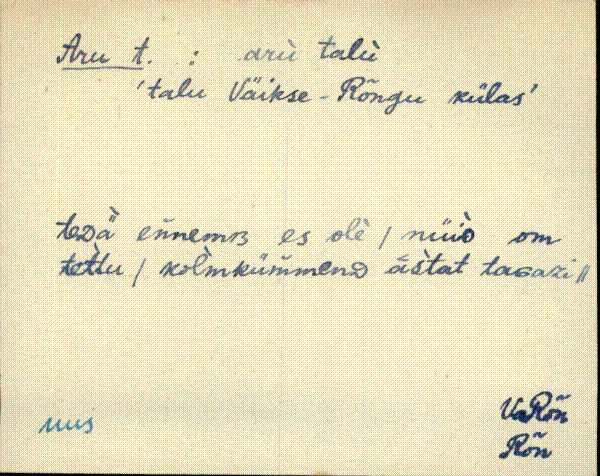 Aru t. : arù talù
'talu Väikse-Rõngu külas'
teᴅä̀ eǹnemʙ es olè / nüìᴅ om
tettu / kolmkümmenᴅ ástat taɢazi //
uus
VaRõn
Rõn